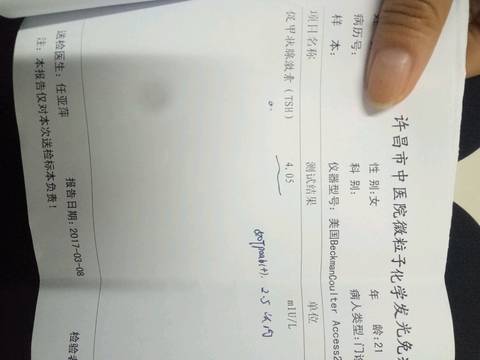 许昌市中医院微粒子化学发光免
性 别:女 年 龄:21
病历号: 科 别: 病人类型:门诊
样 本: 仪器型号:美国BeckmanCoulter Access2
项目名称 测试结果 单位
促甲状腺激素(TSH) 4.05 mIU/L
2.5以内
送检医生:任亚萍 报告日期:2017-03-08 检验
注:本报告仅对本次送检标本负责!